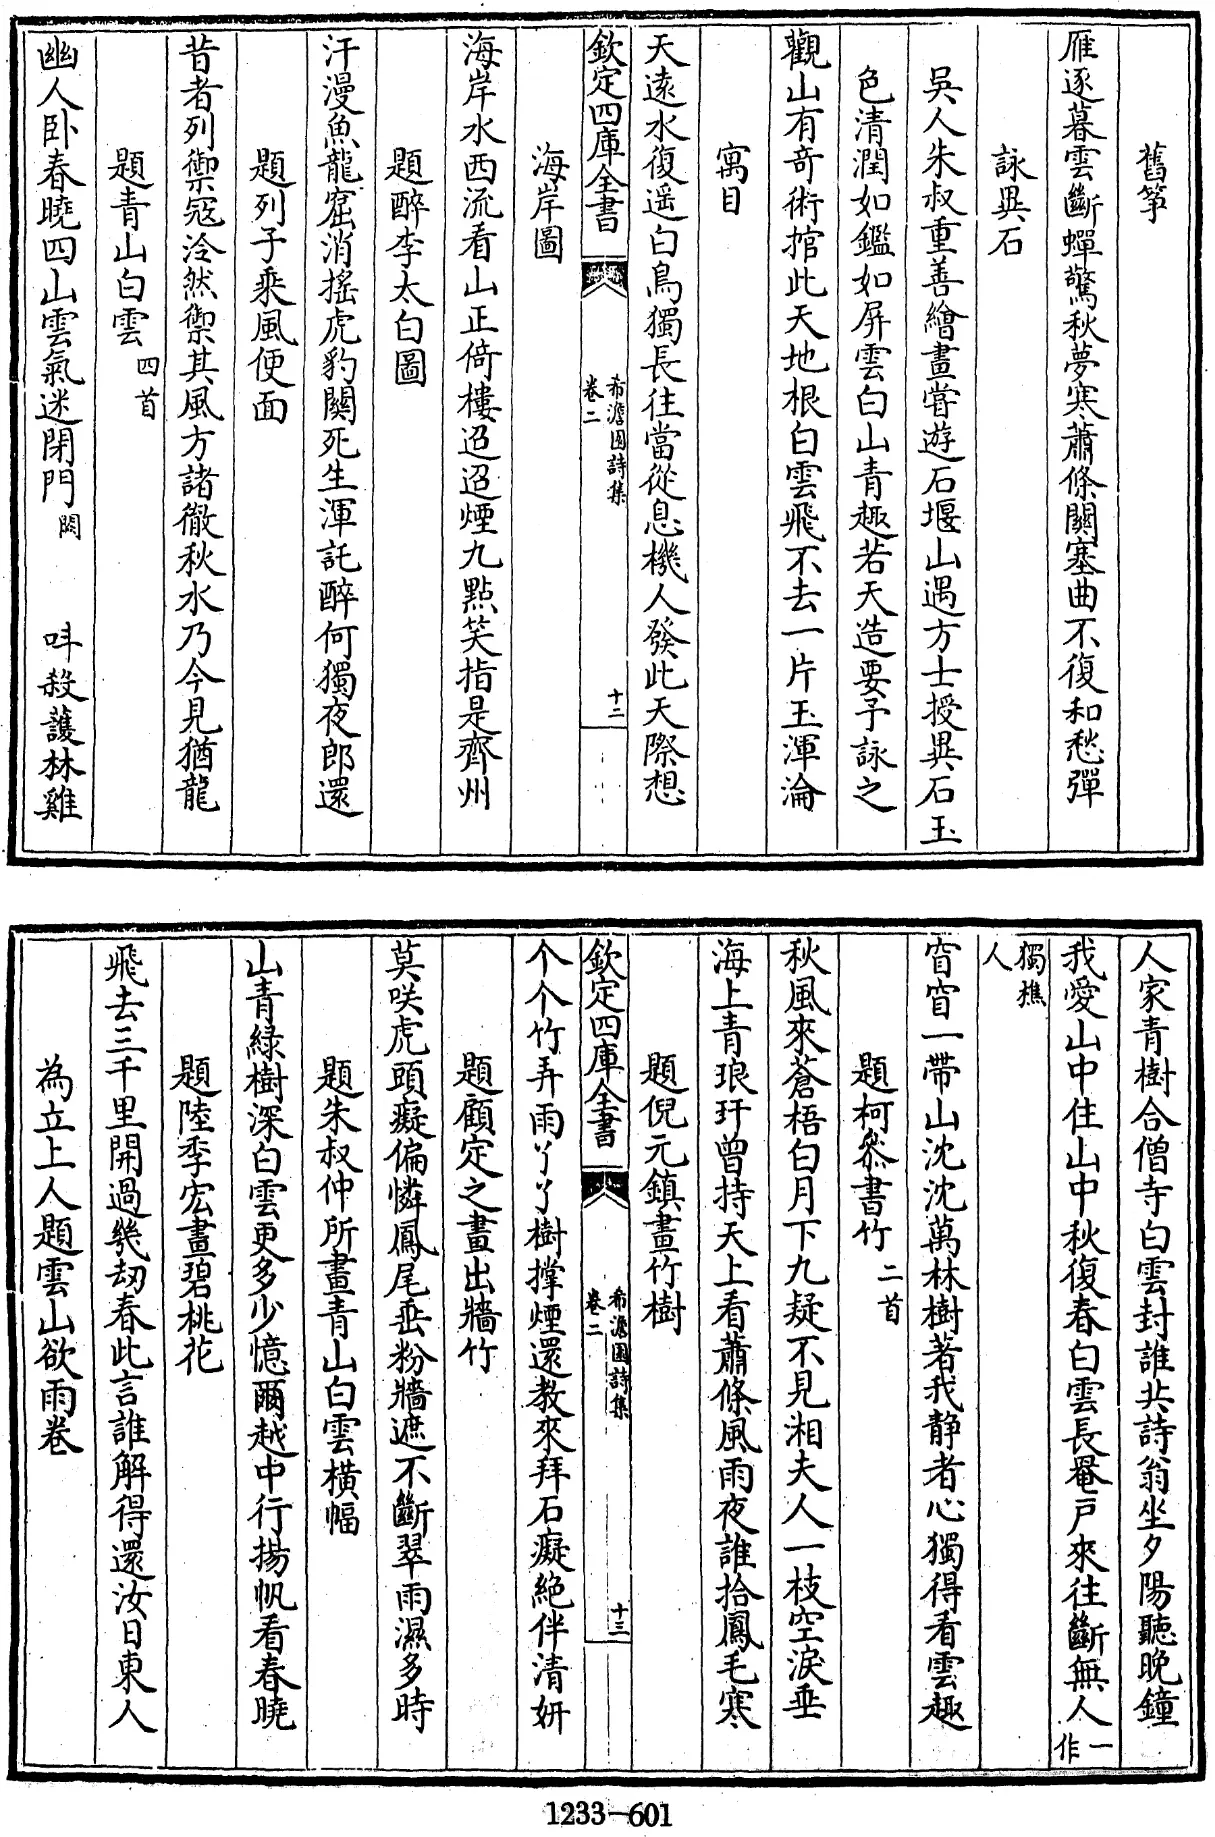 舊箏
雁逐暮雲斷蟬驚秋夢寒蕭條關塞曲不復和愁彈
詠異石
吳人朱叔重善繪畫嘗遊石堰山遇方士授異石玉
色清潤如鑑如屏雲白山青趣若天造要予詠之
觀山有奇術捾此天地根白雲飛不去一片玉渾淪
寓目
天遠水復遥白鳥獨長往當從息機人發此天際想
欽定四庫全書
希澹園詩集
卷二
十二
海岸圖
海岸水西流看山正倚樓迢迢煙九點笑指是齊州
題醉李太白圖
汗漫魚龍窟消搖虎豹關死生渾託醉何獨夜郎還
題列子乘風便面
昔者列禦冦泠然禦其風方諸徹秋水乃今見猶龍
題青山白雲四首
幽人卧春曉四山雲氣迷閉門闕 呌殺護林雞
人家青樹合僧寺白雲封誰共詩翁坐夕陽聽晚鐘
我愛山中住山中秋復春白雲長罨戸來往斷無人一作
獨樵
人
窅窅一帶山沈沈萬林樹著我靜者心獨得看雲趣
題柯叅書竹二首
秋風來蒼梧白月下九疑不見湘夫人一枝空淚垂
海上青琅玕曾持天上看蕭條風雨夜誰拾鳳毛寒
題倪元鎮畫竹樹
个个竹弄雨丫丫樹撑煙還教來拜石癡絶伴清妍
欽定四庫全書
希澹園詩集
卷二
十三
題顧定之畫出牆竹
莫咲虎頭癡偏憐鳳尾垂粉牆遮不斷翠雨濕多時
題朱叔仲所畫青山白雲橫幅
山青緑樹深白雲更多少憶爾越中行揚帆看春曉
題陸季宏畫碧桃花
飛去三千里開過幾刧春此言誰解得還汝日東人
為立上人題雲山欲雨卷
1233-601